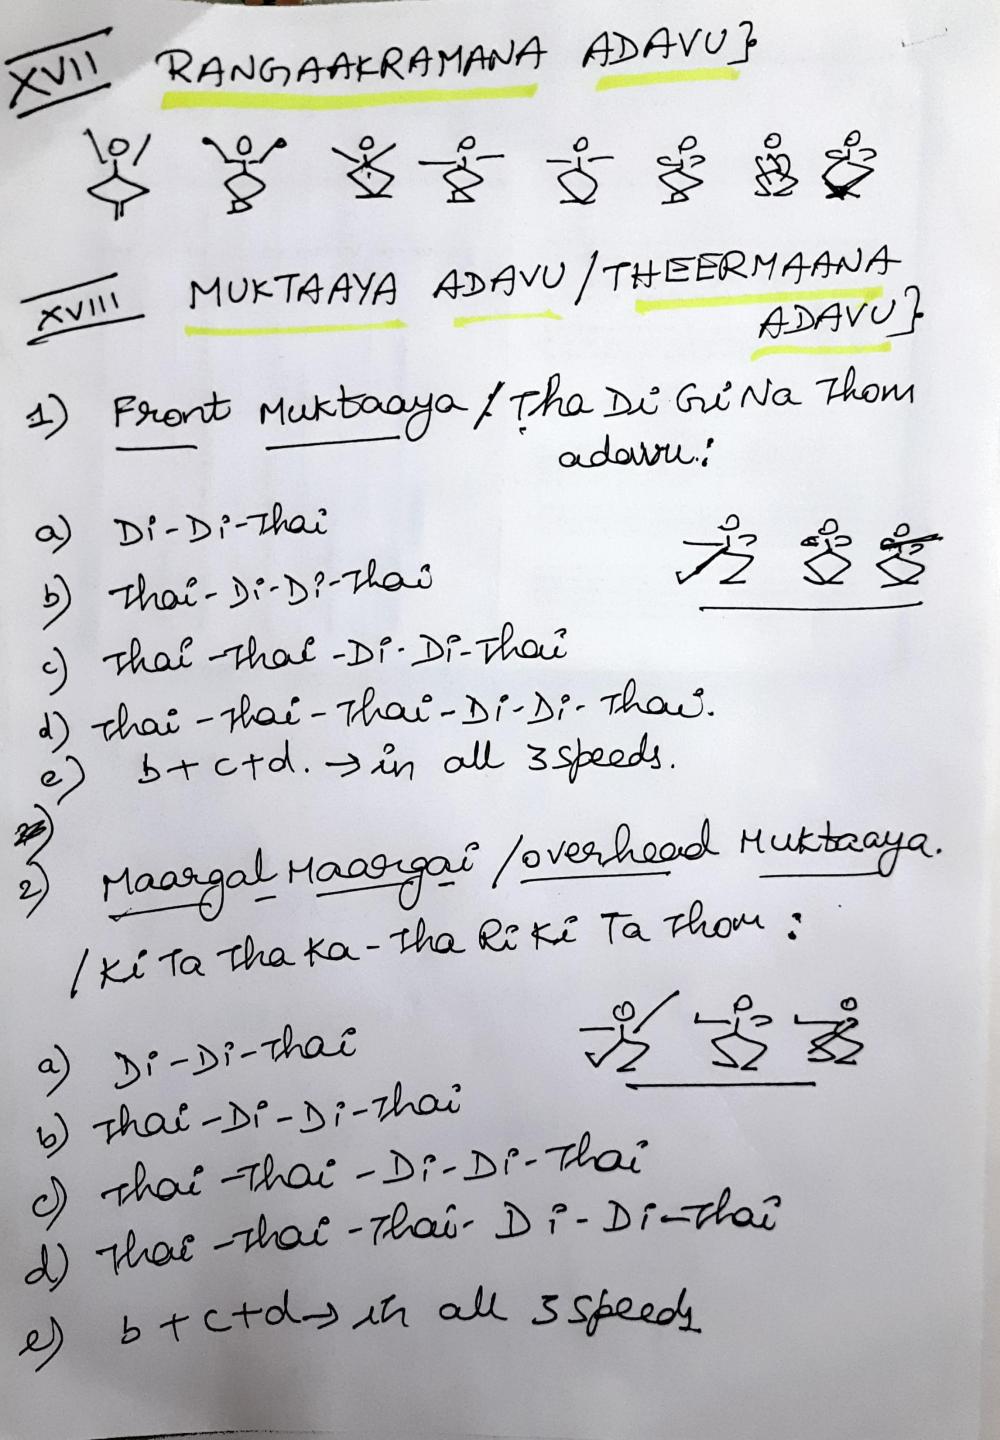 XVII RANGAAKRAMANA ADAVU}
XVIII MUKTAAYA ADAVU / THEERMAANA
ADAVU}
1) Front Muktaaya / Tha Di Gi Na Thom
adavu:
a) Di-Di-Thai
b) Thai-Di-Di-Thai
c) Thai-Thai-Di-Di-Thai
d) Thai-Thai-Thai-Di-Di-Thai.
e) b+c+d. → in all 3 speeds.
2) Maargal Maargai / overhead Muktaaya.
/ Ki Ta Tha Ka - Tha Ri Ki Ta Thom:
a) Di-Di-Thai
b) Thai-Di-Di-Thai
c) Thai-Thai-Di-Di-Thai
d) Thai-Thai-Thai-Di-Di-Thai
e) b+c+d → in all 3 speeds